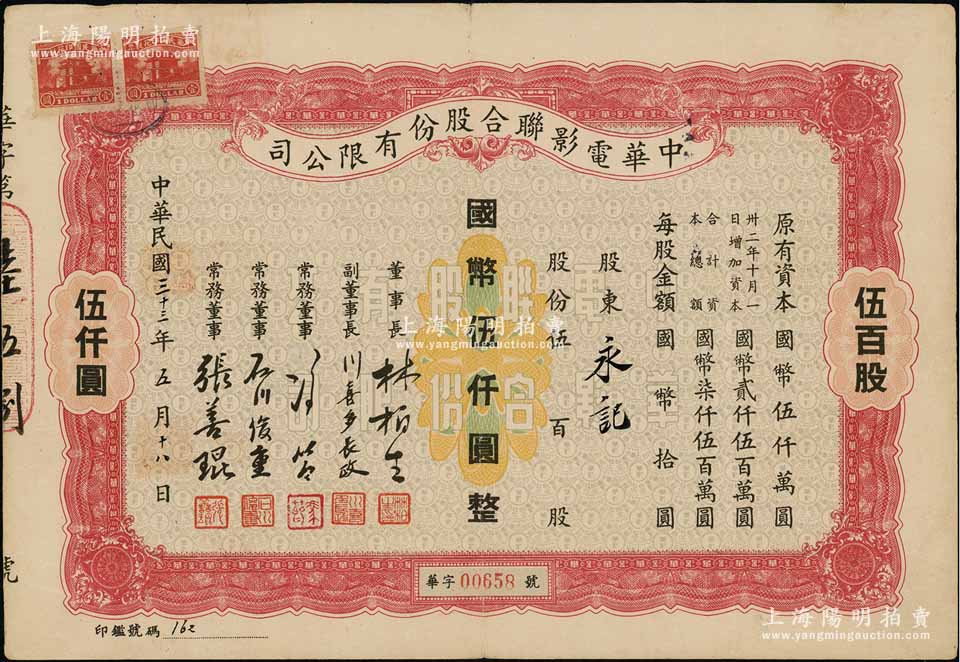 上海陽明拍賣
www.yangmingauction.com
1 DOLLAR
1 DOLLAR
中華電影聯合股份有限公司
伍百股
原有資本國幣伍仟萬圓
卅二年十月一日增加資本國幣貳仟伍百萬圓
合計資本總額國幣柒仟伍百萬圓
每股金額國幣拾圓
股東永記
股份伍百股
國幣伍仟圓整
董事長 林柏生
副董事長 川喜多長政
常務董事 馮節
常務董事 石川俊重
常務董事 張善琨
中華民國三十三年五月十八日
伍仟圓
華字 00658 號
華字第
號
印鑑號碼 162
上海陽明拍賣
www.yangmingauction.com
上海陽明拍賣
www.yangmingauction.com